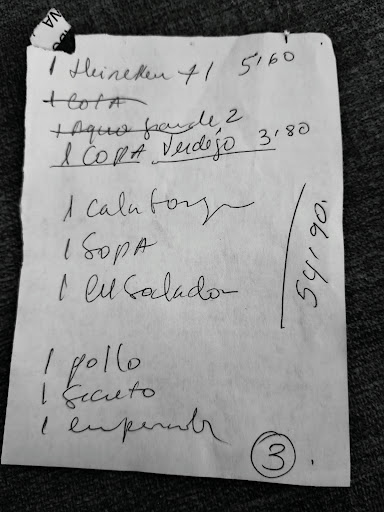 1 Heineken +1 5'60
1 COPA
1 Agua grande 2
1 COPA Verdejo 3'80
1
1 SOPA
1 ensalada
54'90.
1 pollo
1 secreto
1 emperador
3.